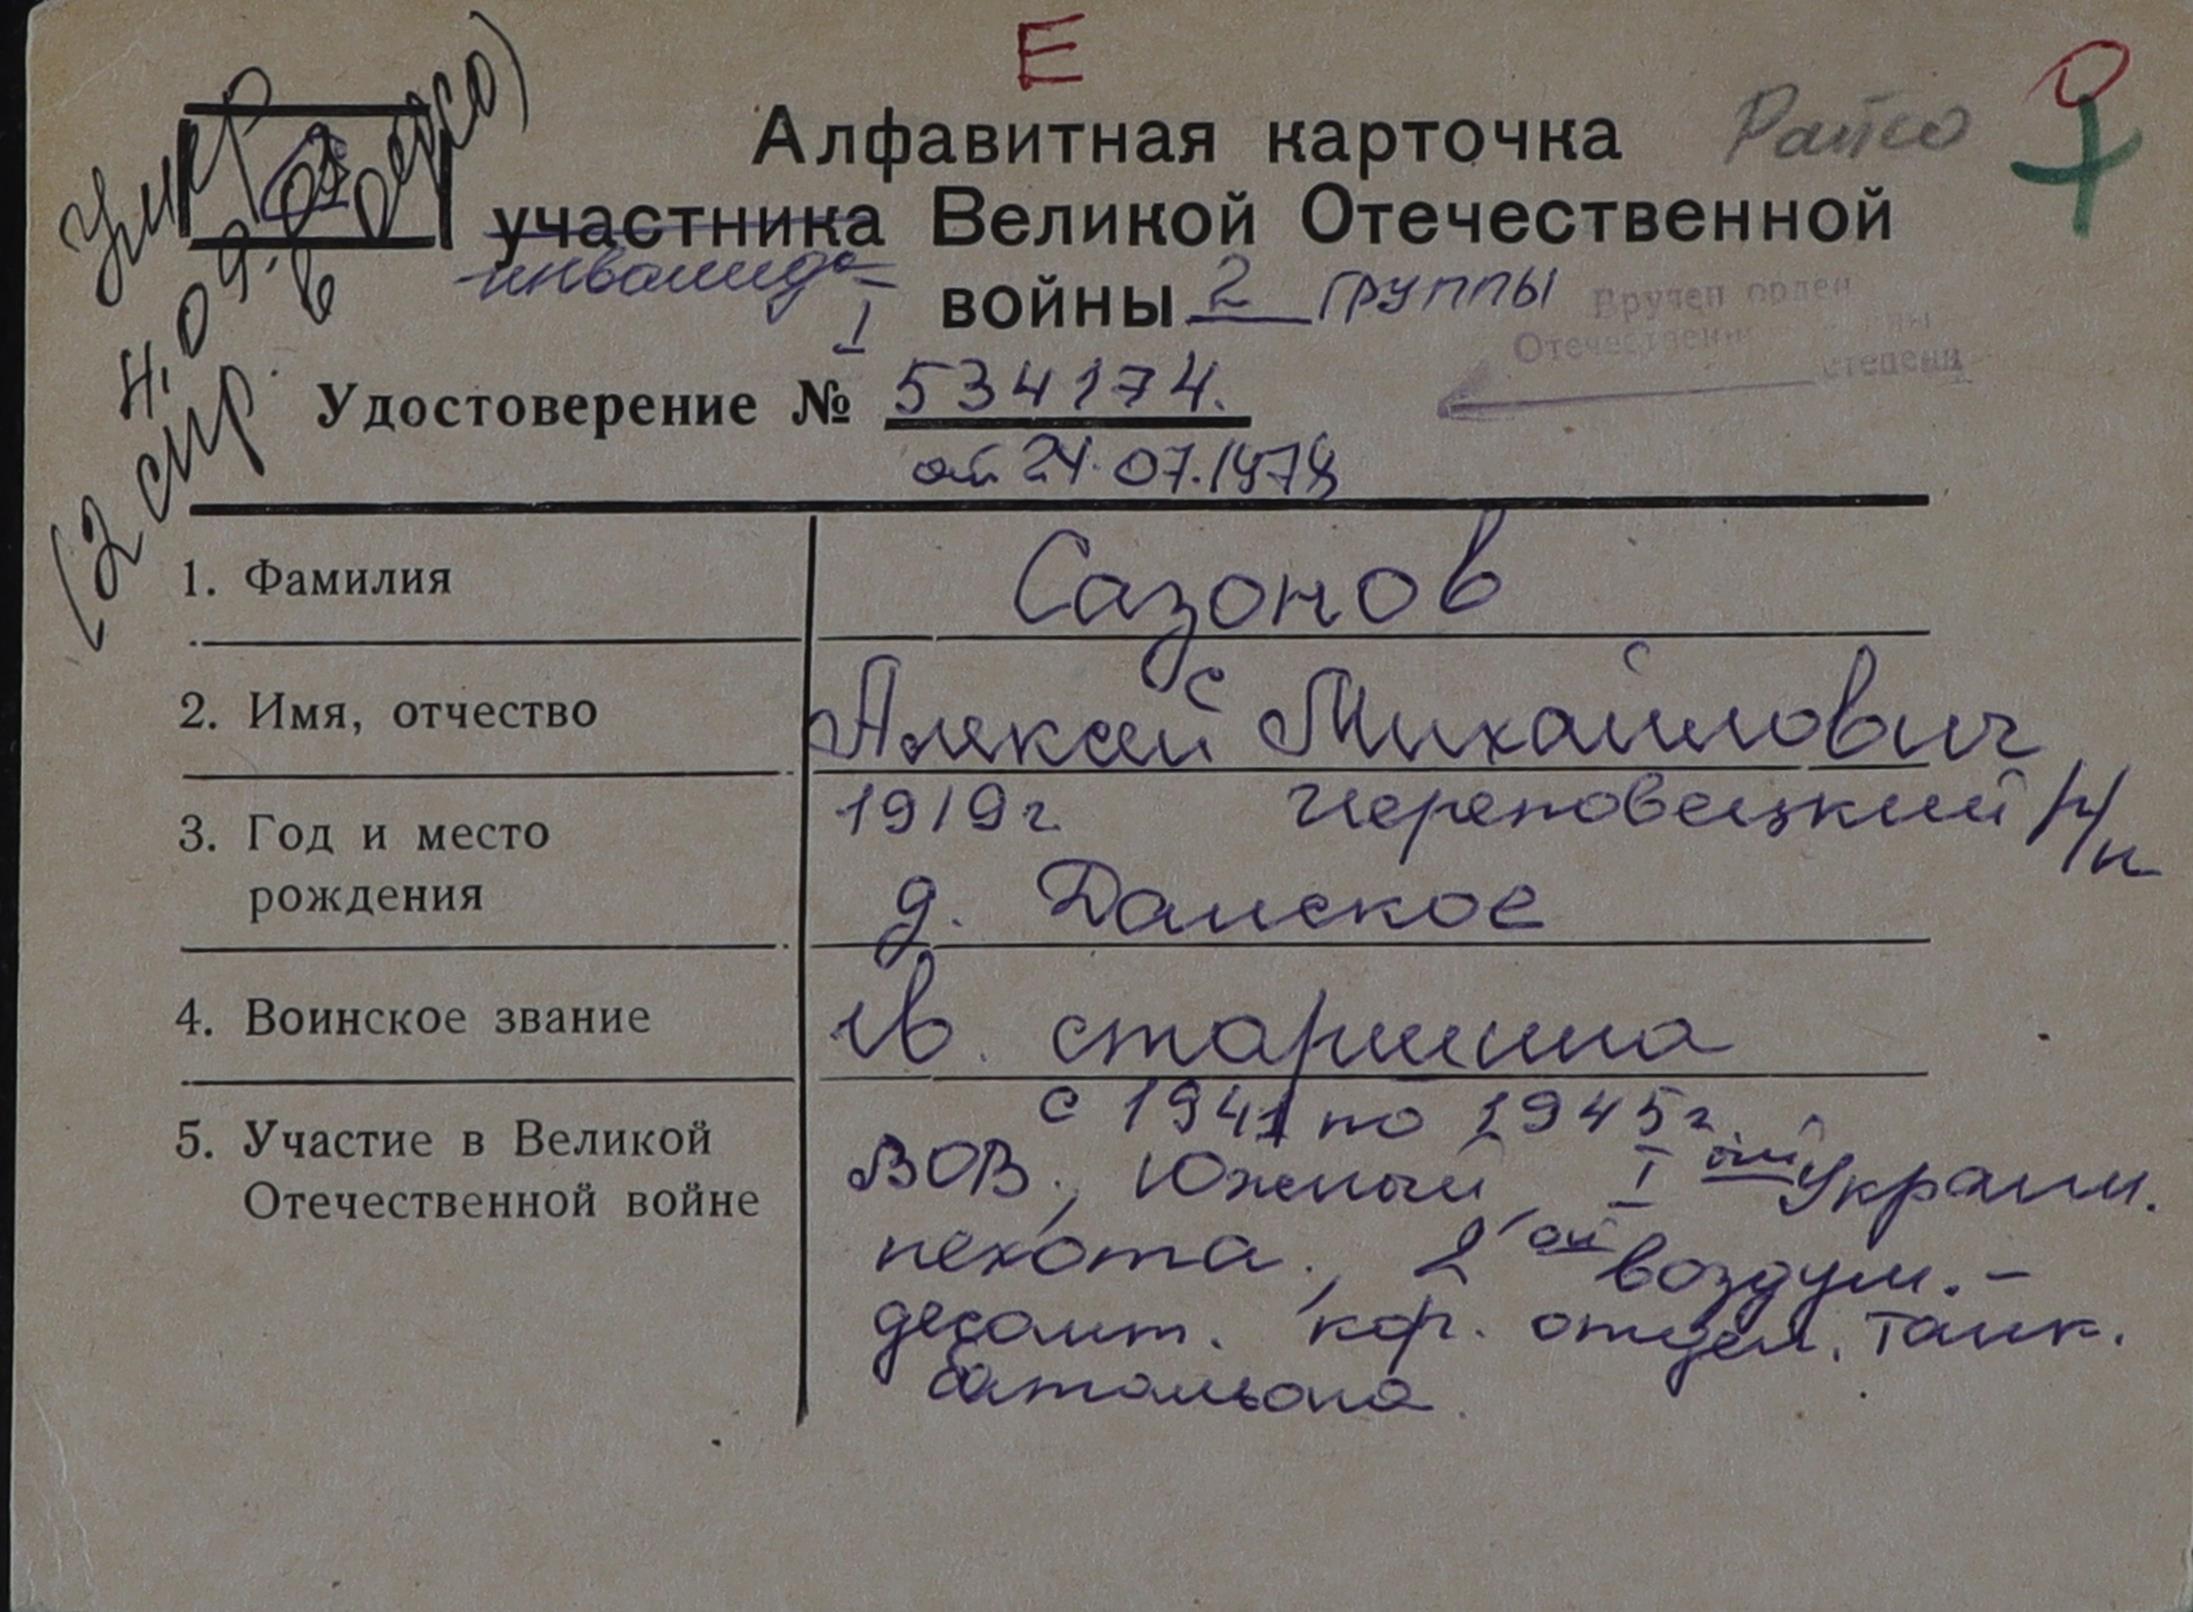 Е
Алфавитная карточка
Райсо
участника Великой Отечественной
инвалида
войны 2 группы
I
Вручен орден
Отечественн
степени
Удостоверение № 534174.
от 24.07.1978
Умер
4.09.
(2 смр. в
1. Фамилия Сазонов
2. Имя, отчество Алексей Михайлович
3. Год и место рождения 1919г Череповецкий
д. Данское
4. Воинское звание гв. старшина
5. Участие в Великой Отечественной войне с 1941 по 1945г.
ВОВ., Южный, I ый Украин.
пехота., 2 ой воздуш. -
десант. кор. отдел. танк.
батальона.